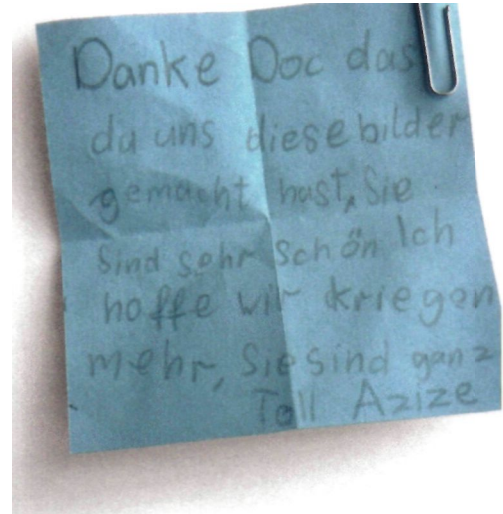 Danke Doc das
du uns diese bilder
gemacht hast, Sie
Sind sehr schön Ich
hoffe wir kriegen
mehr, Sie sind ganz
Toll Azize